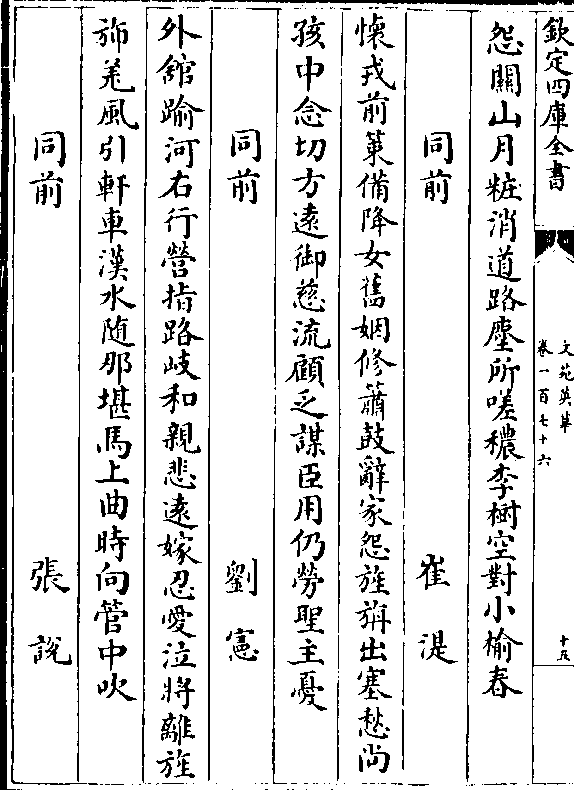 欽定四庫全書
文苑英華
卷一百七十六
十五
怨關山月粧消道路塵所嗟穠李樹空對小榆春
同前 崔湜
懷戎前策備降女舊姻修簫鼓辭家怨旌旃出塞愁尚
孩中念切方遠御慈流顧乏謀臣用仍勞聖主憂
同前 劉憲
外舘踰河右行營指路岐和親悲遠嫁忍愛泣將離旌
斾羌風引軒車漢水随那堪馬上曲時向管中吹
同前 張說